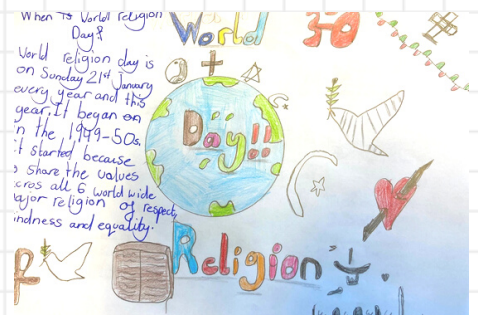 When Is World religion
Day?
World religion day is
on Sunday 21st January
every year and this
year. It began on
in the 1949-50s.
it started because
share the values
cros all 6 world wide
ajor religion of respect,
indness and equality.
World
Day!!
Religion